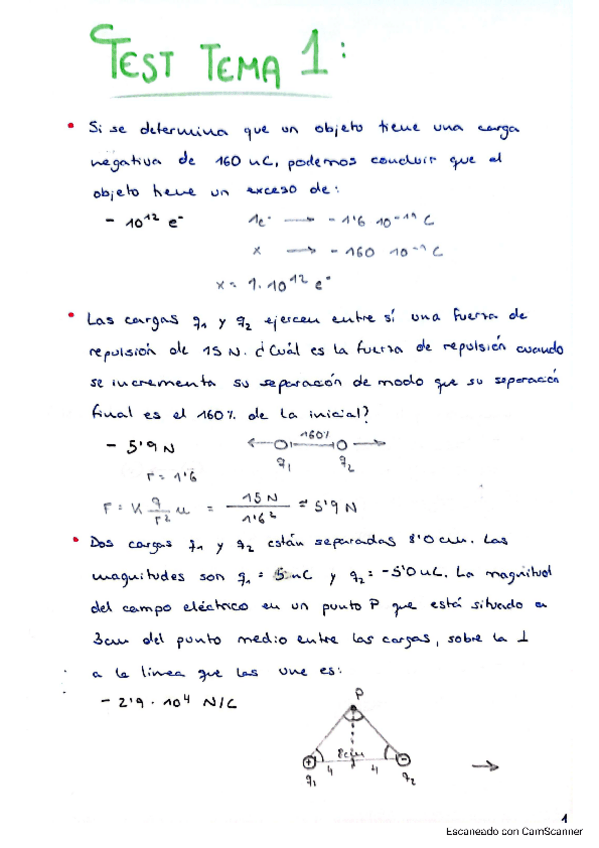 TEST TEMA 1:
• Si se determina que un objeto tiene una carga
negativa de 160 nC, podemos concluir que el
objeto tiene un exceso de:
- 10¹² e⁻
1e⁻ → - 1'6 10⁻¹⁹ C
x → - 160 10⁻⁹ C
x = 1·10¹² e⁻
• Las cargas q₁ y q₂ ejercen entre sí una fuerza de
repulsión de 15 N. ¿Cuál es la fuerza de repulsión cuando
se incrementa su separación de modo que su separación
final es el 160% de la inicial?
- 5'9 N
160%
q₁ q₂
r = 1'6
F = K q/r² u = 15 N/1'6² = 5'9 N
• Dos cargas q₁ y q₂ están separadas 8'0 cm. Las
magnitudes son q₁ = 5 nC y q₂ = -5'0 nC. La magnitud
del campo eléctrico en un punto P que está situado a
3cm del punto medio entre las cargas, sobre la ⊥
a la linea que las une es:
- 2'9 · 10⁴ N/C
P
8cm
+ 4 4 -
q₁ q₂
→
1
Escaneado con CamScanner